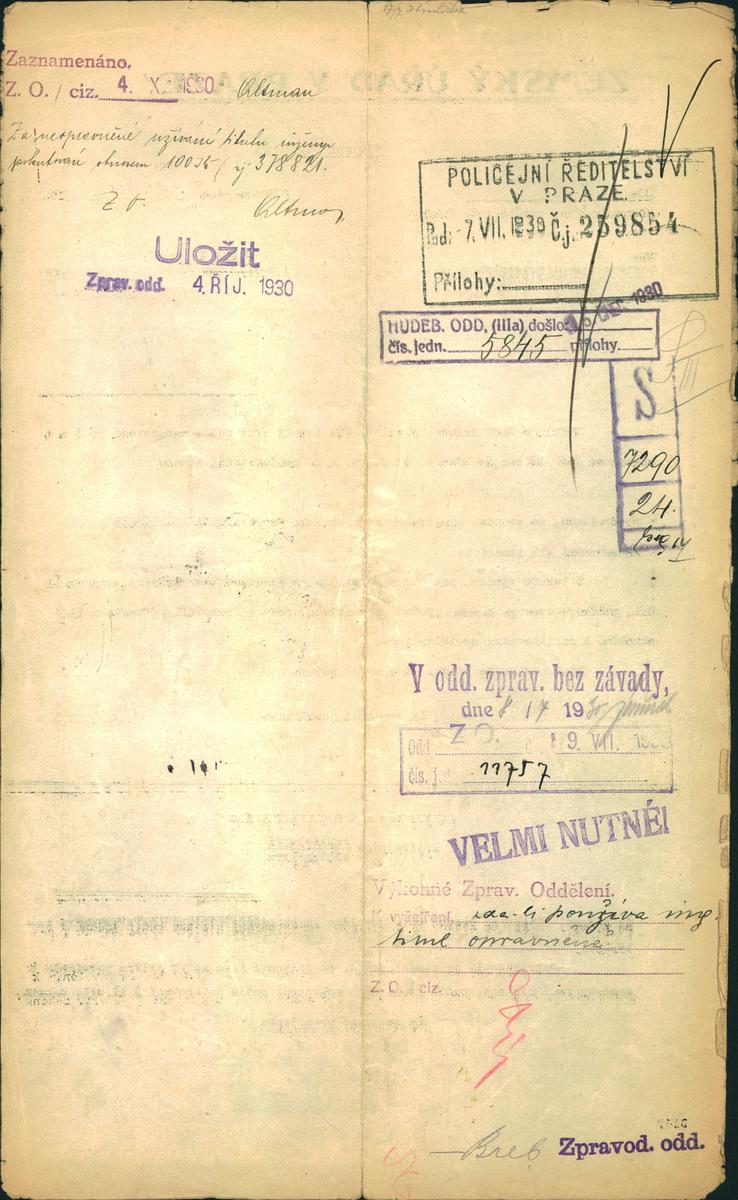 Zaznamenáno.
Z. O. / ciz. 4. X. 1930 Altman
Za neoprávněné užívání titulu
pokutován obnosem 100 Kč / čj 378821.
Z O. Altman
Uložit
Zprav. odd. 4. ŘÍJ. 1930
POLICEJNÍ ŘEDITELSTVÍ
V PRAZE
Pod.: -7. VII. 1930 Č.j. 259854
Přílohy:
HUDEB. ODD. (IIIa) došlo 1930
čís. jedn. 5845 přílohy.
S
7290
24.
V odd. zprav. bez závady,
dne 8 / 7 1930
Odd. Z O. d 9. VII. 193
čís. j. 11757
VELMI NUTNÉ!
Výkonné Zprav. Oddělení.
K vyšetření, zda-li používá ing.
titul oprávněně.
Z. O. / ciz.
Zpravod. odd.